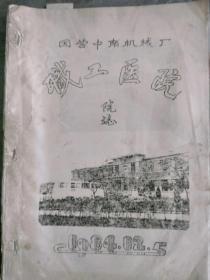 国营中南机械厂
职工医院
院志
1984.12.5